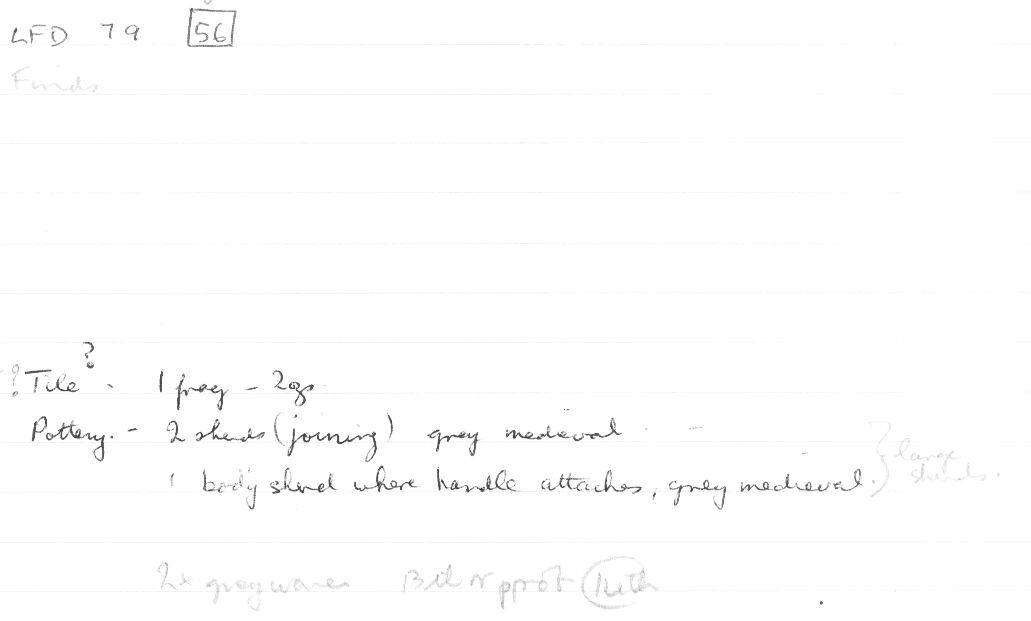 LFD 79 56
Finds
? Tile ? - 1 frag - 2gs.
Pottery. - 2 sherds (joining) grey medieval. -
1 body sherd where handle attaches, grey medieval. } large sherds.
2x greyware